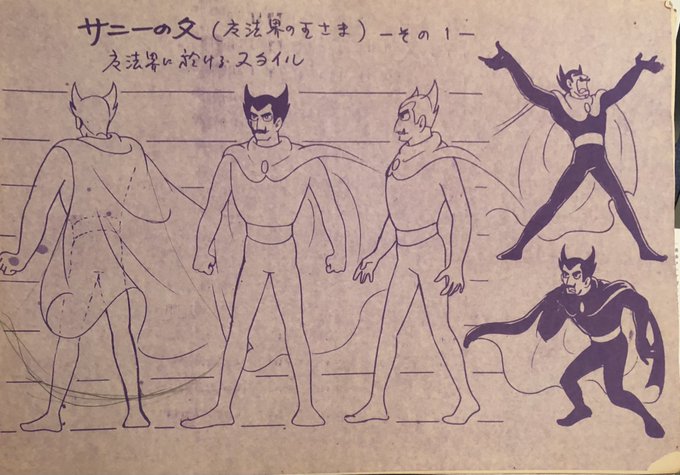 サニーの父（魔法界の王さま）—その1—
魔法界に於けるスタイル